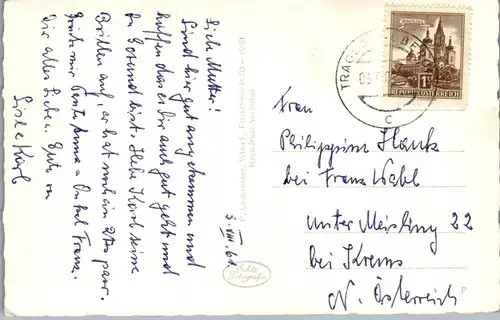 3. VIII. 61
Liebe Mutter!
Sind hier gut angekommen und
hoffen das es Dir auch gut geht und
Du Gesund bist. Hebe Karl seine
Brillen auf, er hat noch ein 2tes paar.
Grüße mir Tante Anna u Onkel Franz.
Dir alles Liebe. Eure
Liesl Karl
P. Ledermann, Wien I, Fleischmarkt 20 – 1961
Nachdruck verboten
Echte
Fotografie
TRAG
C
REPUBLIK ÖSTERREICH
Frau
Philippine Hauk
bei Franz Wabl
Unter Meisling 22
bei Krems
N. Österreich
P